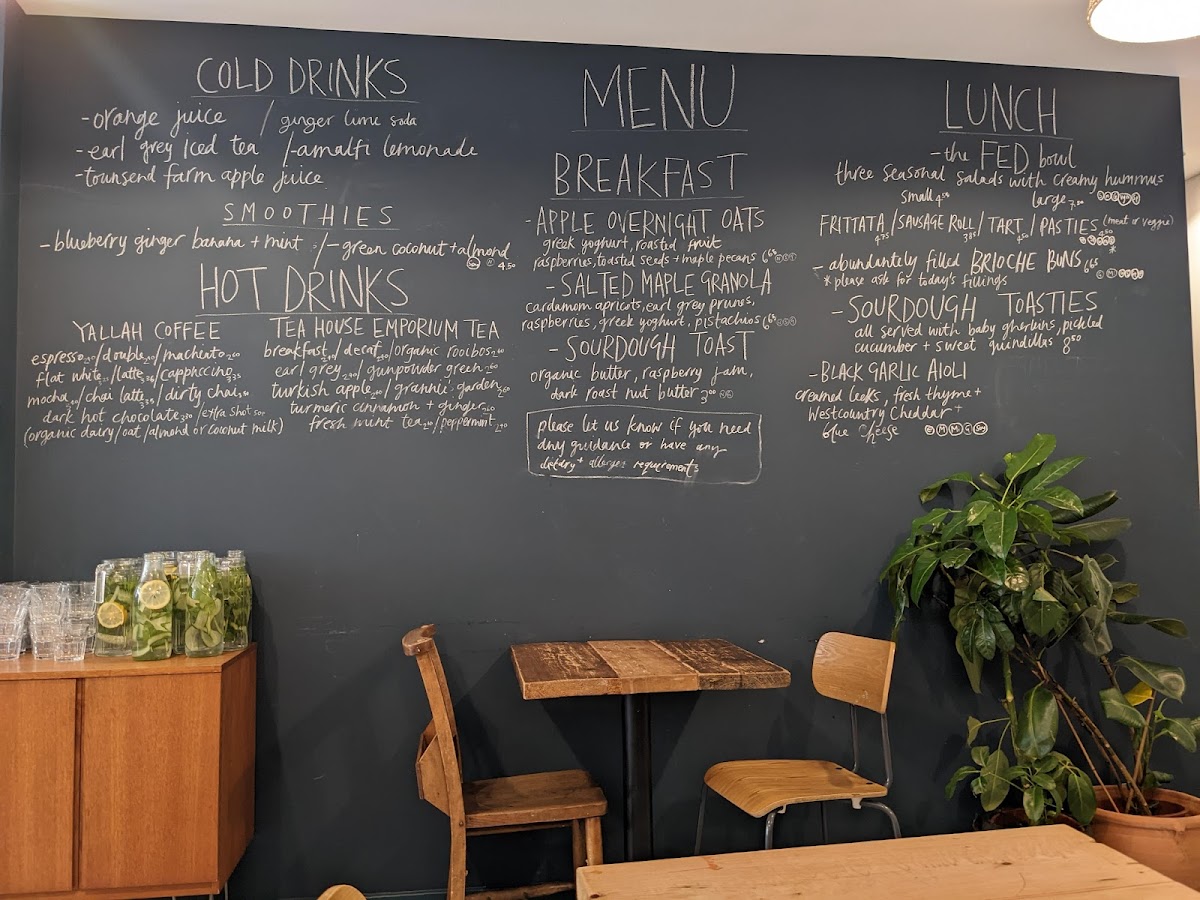 COLD DRINKS
-orange juice / ginger lime soda
-earl grey iced tea /-amalfi lemonade
-townsend farm apple juice
SMOOTHIES
-blueberry ginger banana + mint /-green coconut + almond
4.50
HOT DRINKS
YALLAH COFFEE
espresso /double /machiato 2.60
flat white /latte /cappuccino 3.35
mocha /chai latte /dirty chai
dark hot chocolate /extra shot 50p
(organic dairy/oat/almond or coconut milk)
TEA HOUSE EMPORIUM TEA
breakfast /decaf /organic rooibos 2.60
earl grey /gunpowder green 2.60
turkish apple /grannie' garden 2.60
turmeric cinnamon + ginger 2.60
fresh mint tea /peppermint
MENU
BREAKFAST
-APPLE OVERNIGHT OATS
greek yoghurt, roasted fruit
raspberries, toasted seeds + maple pecans 6.65
-SALTED MAPLE GRANOLA
cardamom apricots, earl grey prunes,
raspberries, greek yoghurt, pistachios 6.65
-SOURDOUGH TOAST
organic butter, raspberry jam,
dark roast nut butter 3.00
please let us know if you need
any guidance or have any
dietary + allergen requirements
LUNCH
-the FED bowl
three seasonal salads with creamy hummus
small 4.50 large 7.00
FRITTATA 4.75 /SAUSAGE ROLL 3.85 /TART 4.50 /PASTIES 4.50 (meat or veggie)
-abundantely filled BRIOCHE BUNS 6.65
*please ask for today's fillings
-SOURDOUGH TOASTIES
all served with baby gherkins, pickled
cucumber + sweet guindillas 8.50
-BLACK GARLIC AIOLI
creamed leeks, fresh thyme +
Westcountry Cheddar +
blue cheese